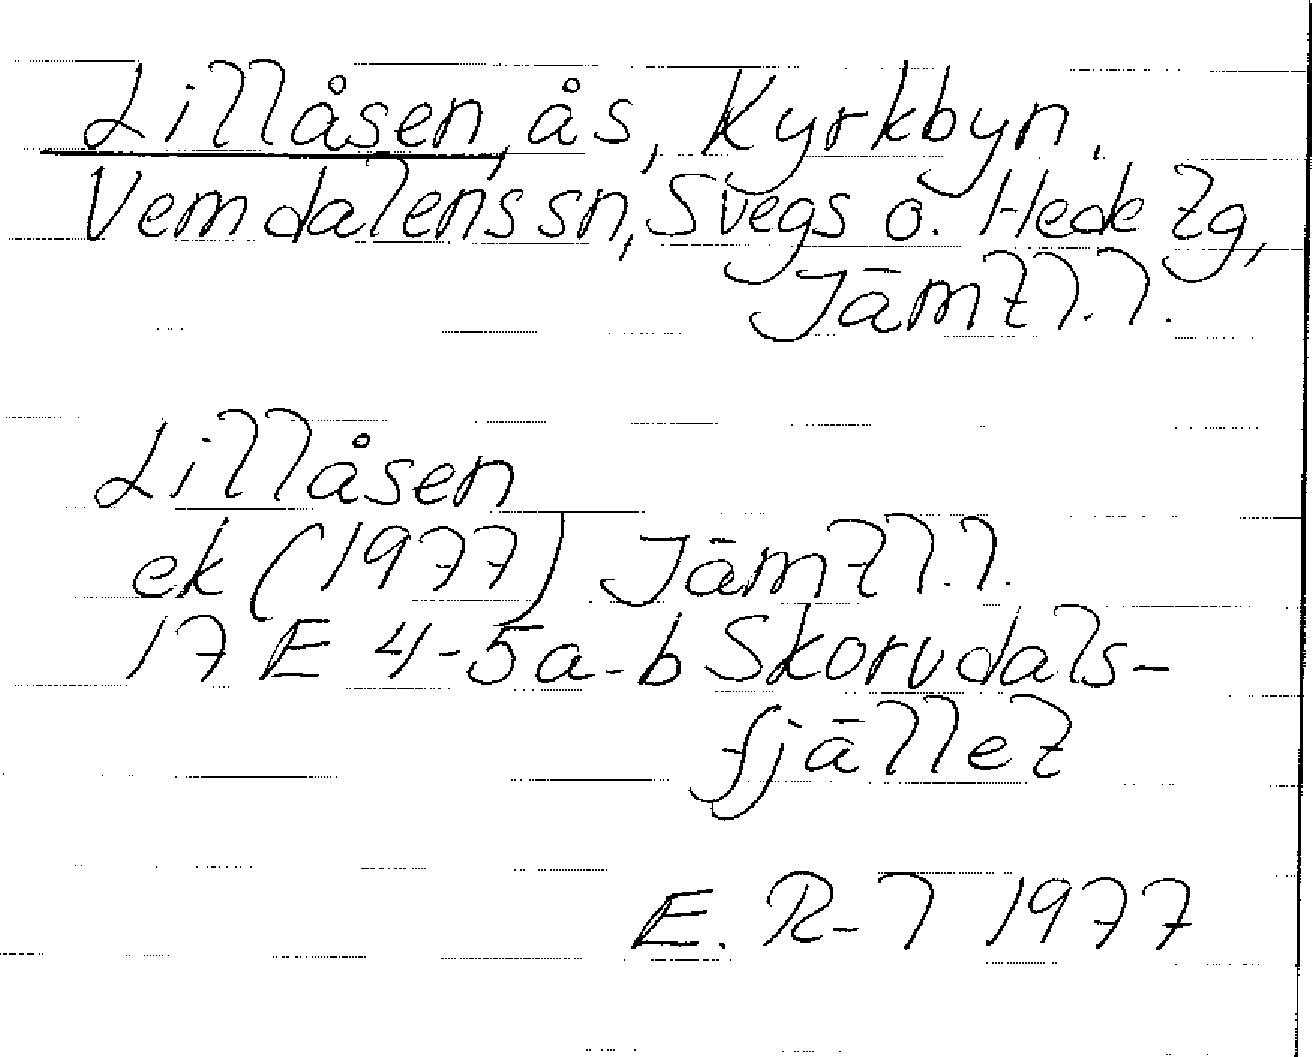 Lillåsen, ås, Kyrkbyn.
Vemdalens sn, Svegs o. Hede tg,
Jämtl.l.
Lillåsen
ek (1977) Jämtl.l.
17 E 4-5a-b Skorvdals-
fjället
E. R-l 1977